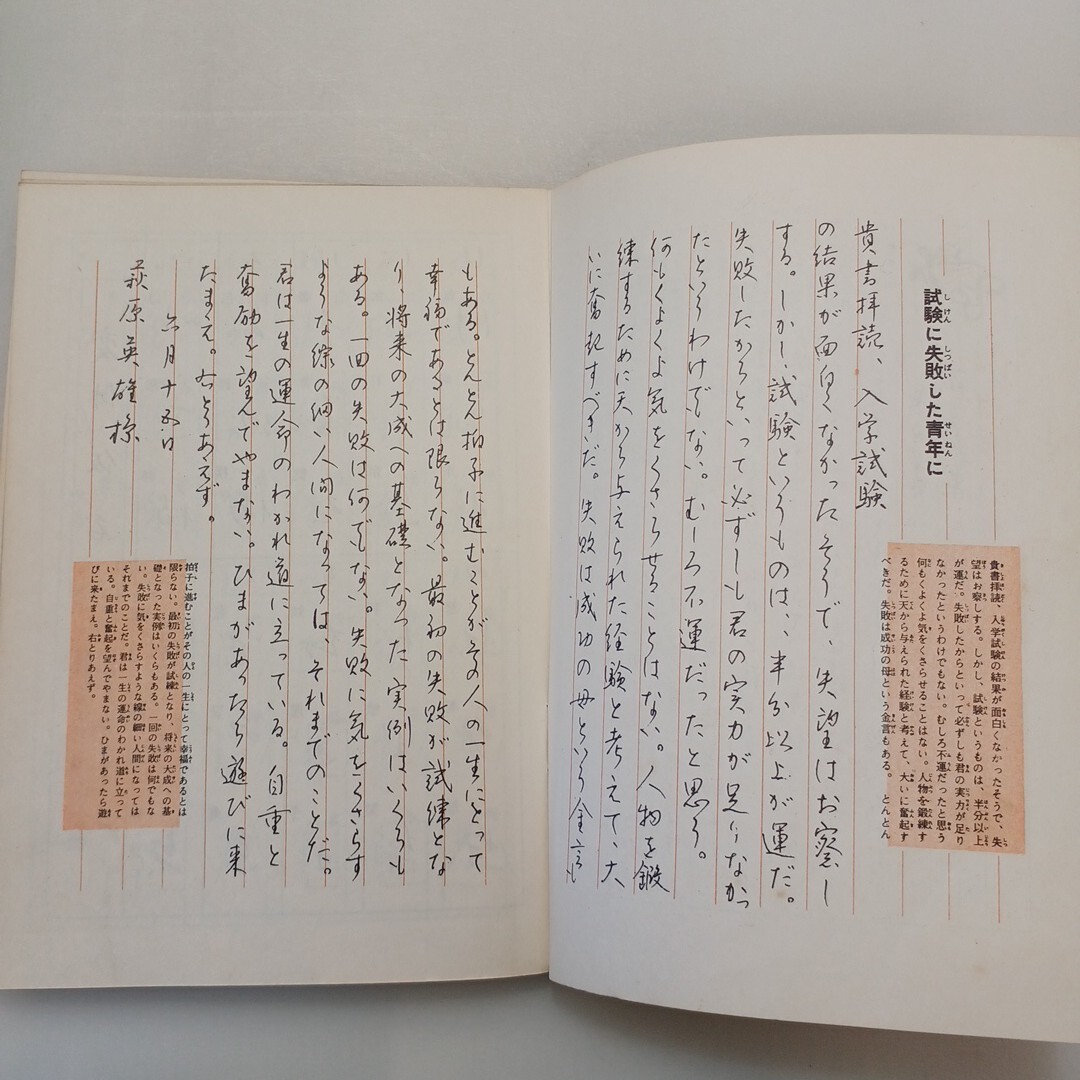 試験に失敗した青年に
貴書拝読、入学試験
の結果が面白くなかったそうで、失望はお察し
する。しかし、試験というものは、半分以上が運だ。
失敗したからといって必ずしも君の実力が足りなかっ
たというわけでない。むしろ不運だったと思う。
何もくよくよ気をくさらせることはない。人物を鍛
練するために天から与えられた経験と考えて、大
いに奮起すべきだ。失敗は成功の母という金言も
貴書拝読、入学試験の結果が面白くなかったそうで、失
望はお察しする。しかし、試験というものは、半分以上
が運だ。失敗したからといって必ずしも君の実力が足り
なかったというわけでもない。むしろ不運だったと思う
何もくよくよ気をくさらせることはない。人物を鍛練す
るために天から与えられた経験と考えて、大いに奮起す
べきだ。失敗は成功の母という金言もある。とんとん
もある。とんとん拍子に進むことがその人の一生にとって
幸福であるとは限らない。最初の失敗が試練とな
り、将来の大成への基礎となった実例はいくらも
ある。一回の失敗は何でもない。失敗に気をくさらす
ような線の細い人間になっては、それまでのことだ。
君は一生の運命のわかれ道に立っている。自重と
奮励を望んでやまない。ひまがあったら遊びに来
たまえ。右とりあえず。
六月十五日
萩原英雄様
拍子に進むことがその人の一生にとって幸福であるとは
限らない。最初の失敗が試練となり、将来の大成への基
礎となった実例はいくらもある。一回の失敗は何でもな
い。失敗に気をくさらすような線の細い人間になっては
それまでのことだ。君は一生の運命のわかれ道に立って
いる。自重と奮起を望んでやまない。ひまがあったら遊
びに来たまえ。右とりあえず。